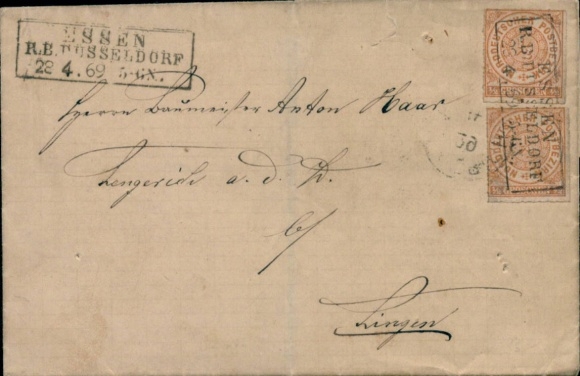 ESSEN
R.B. DÜSSELDORF
28 4.69 5-6N.
Herrn Baumeister Anton Haar
Lengerich a. d. W.
b/
Lingen
NORDDEUTSCHER POSTBEZIRK